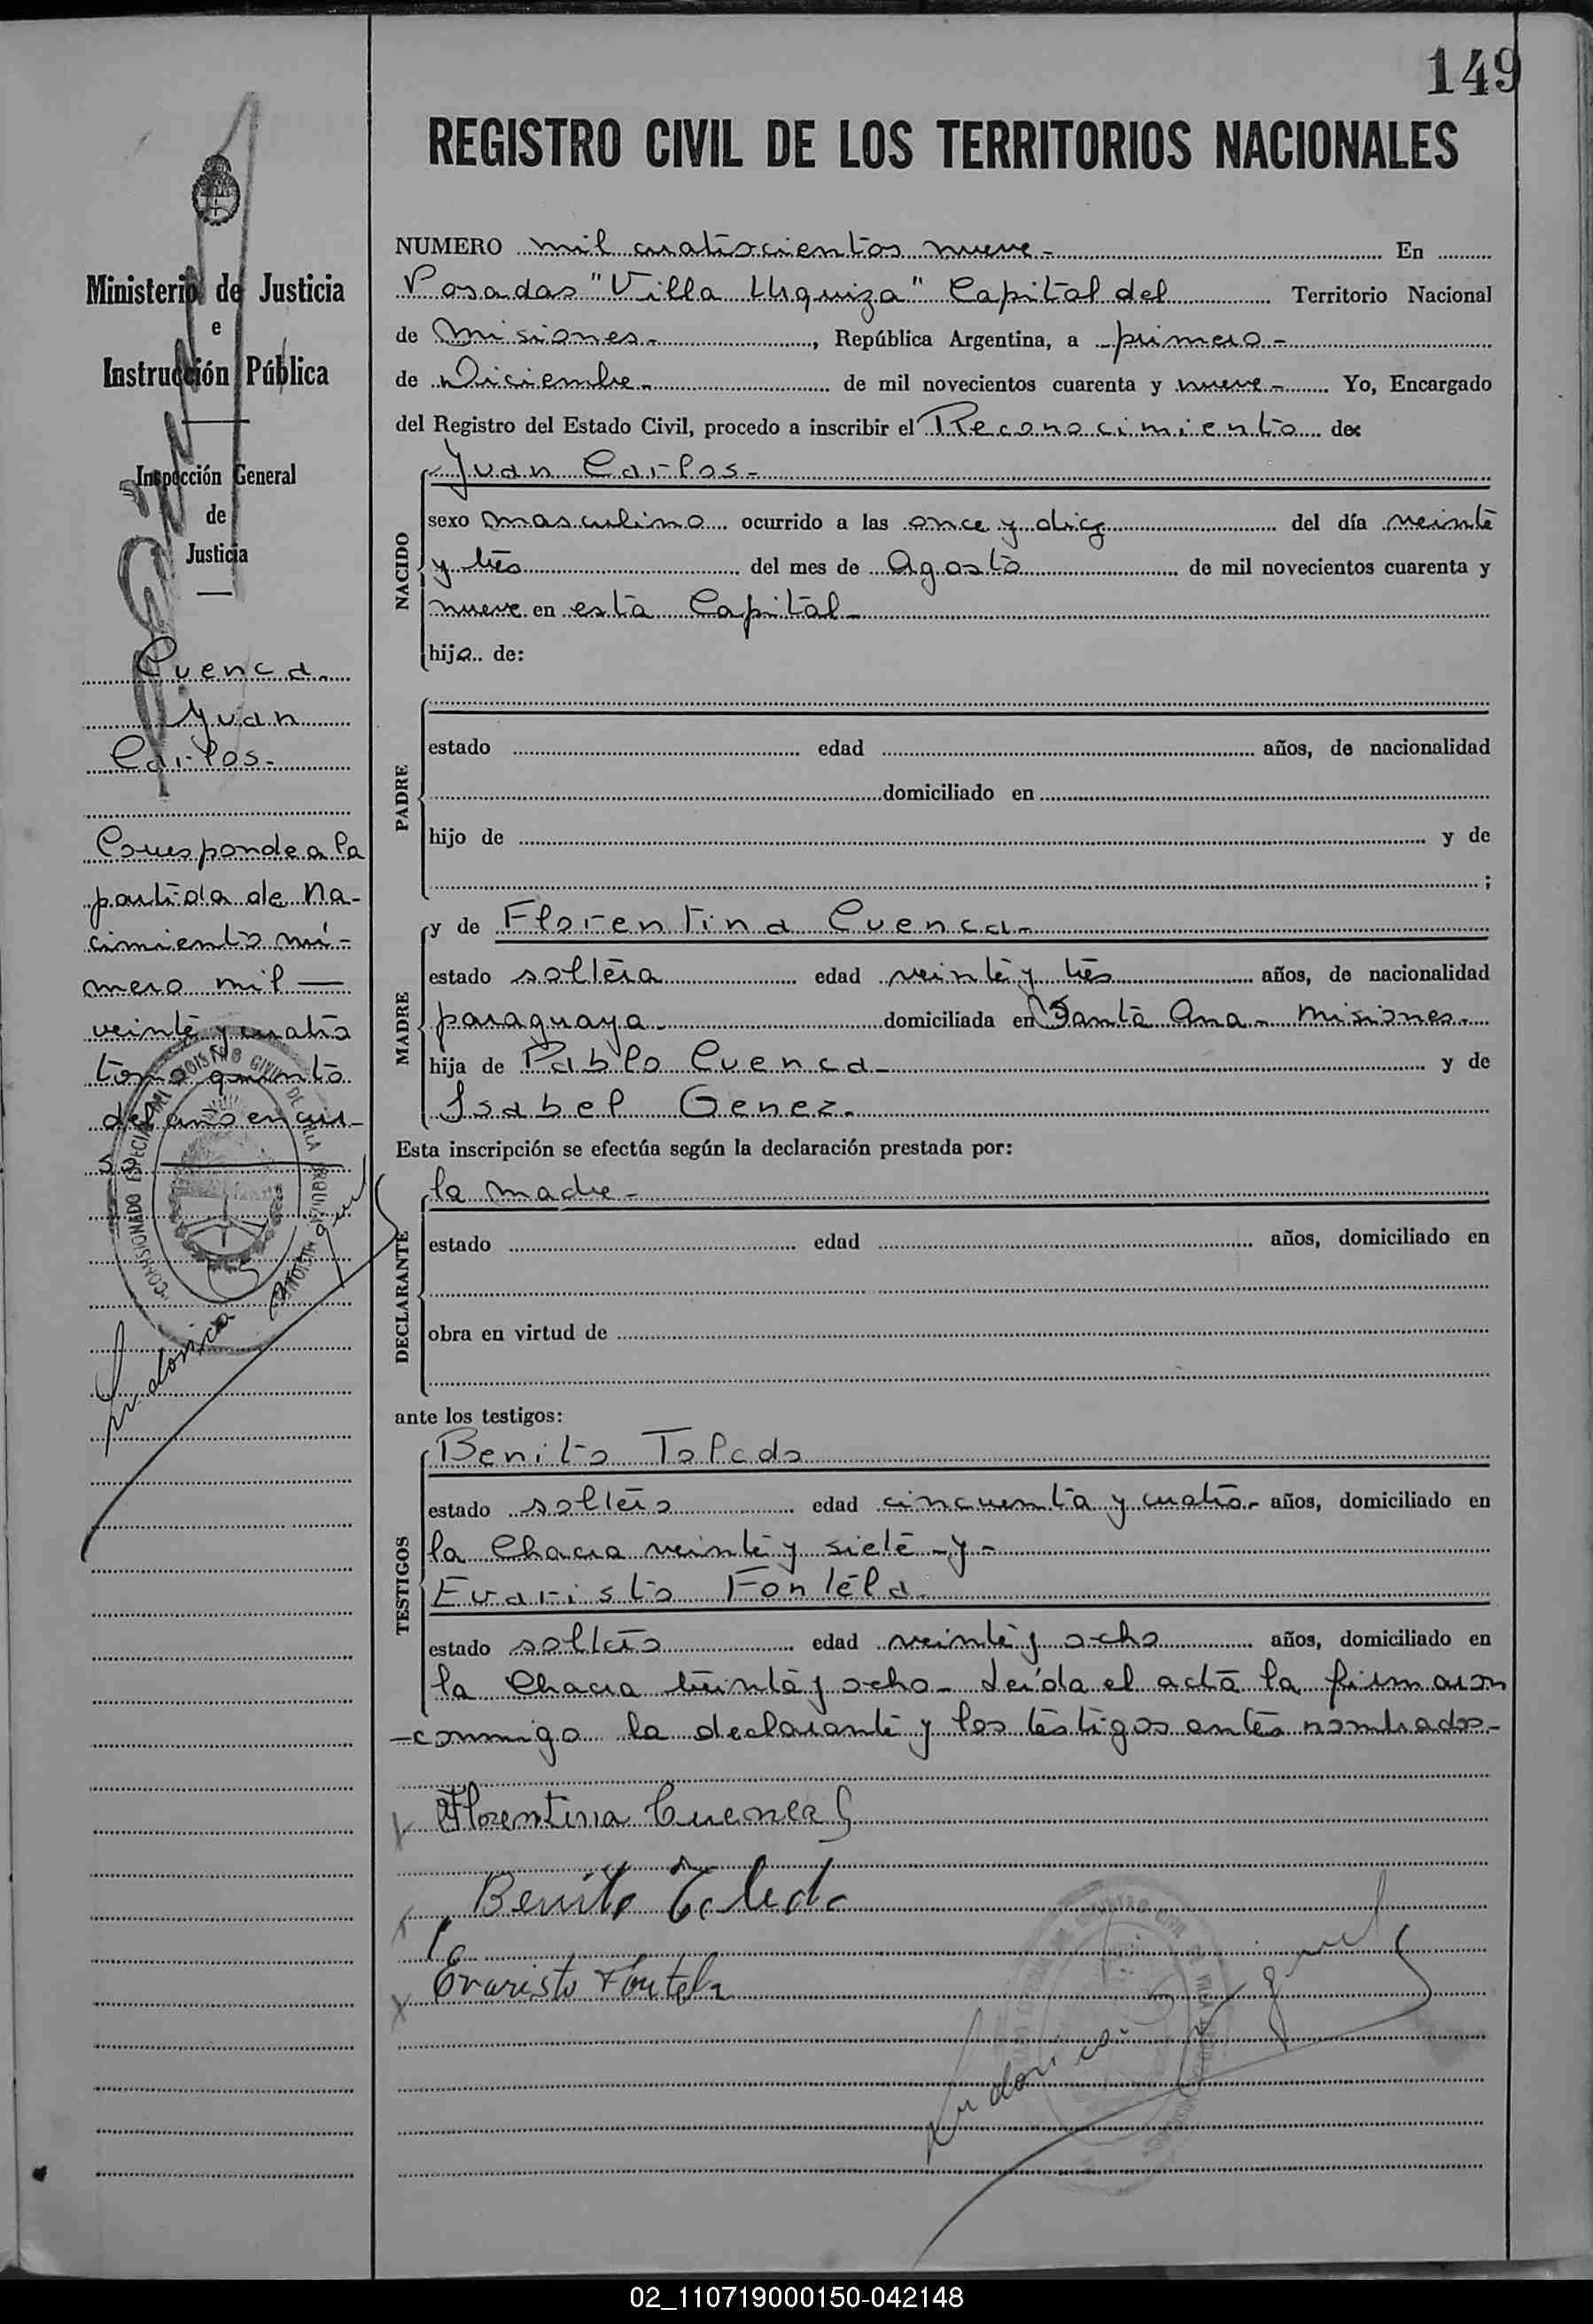 149
REGISTRO CIVIL DE LOS TERRITORIOS NACIONALES
Ministerio de Justicia
e
Instrucción Pública
Inspección General
de
Justicia
Cuenca
Juan
Carlos-
Corresponde a la
partida de Na-
cimiento nú-
mero mil —
veinte y cuatro
tomo quinto
del año en cur-
so
NUMERO mil cuatrocientos nueve- En
Posadas "Villa Urquiza" Capital del Territorio Nacional
de Misiones-, República Argentina, a primero-
de Diciembre- de mil novecientos cuarenta y nueve- Yo, Encargado
del Registro del Estado Civil, procedo a inscribir el Reconocimiento de:
NACIDO
Juan Carlos-
sexo masculino ocurrido a las once y diez del día veinte
y tres del mes de Agosto de mil novecientos cuarenta y
nueve en esta Capital-
hijo de:
PADRE
estado edad años, de nacionalidad
domiciliado en
hijo de y de
;
MADRE
y de Florentina Cuenca-
estado soltera edad veinte y tres años, de nacionalidad
paraguaya- domiciliada en Santa Ana- Misiones.
hija de Pablo Cuenca- y de
Isabel Genez.
Esta inscripción se efectúa según la declaración prestada por:
DECLARANTE
la madre-
estado edad años, domiciliado en
obra en virtud de
ante los testigos:
TESTIGOS
Benito Toledo
estado soltero edad cincuenta y cuatro- años, domiciliado en
la Chacra veinte y siete -y-
Evaristo Fontela
estado soltero edad veinte y ocho años, domiciliado en
la Chacra treinta y ocho- Leída el acta la firmaron
-conmigo la declarante y los testigos antes nombrados-
Florentina Cuenca G
Benito Toledo
Evaristo Fontela
02_110719000150-042148